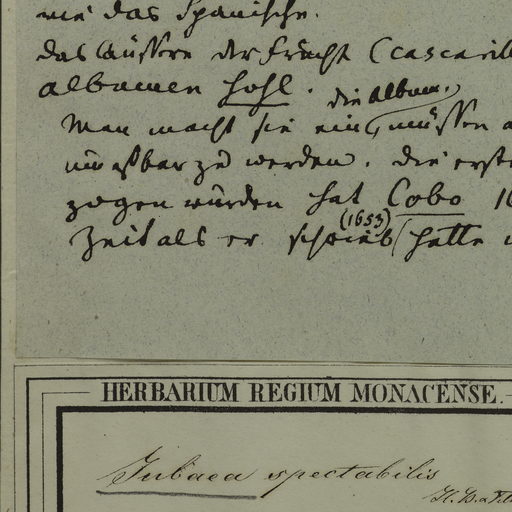 wie das Spanische.
das äussere der Frucht (cascarill
albumen hohl.
die album.
Man macht sie ein, müssen a
um essbar zu werden. die erste
zogen wurden hat Cobo 16
(1653)
Zeit als er schrieb hatte
HERBARIUM REGIUM MONACENSE.
Jubaea spectabilis
H. B.